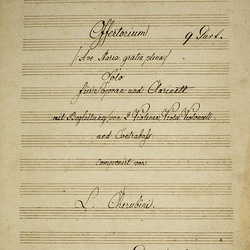 Offertorium
(Ave Maria, gratia plena)
Solo
für Sopran und Clarinett
mit Begleitung von 2 Violinen, Viola, Violoncell
und Contrabass
componirt von
L. Cherubini.